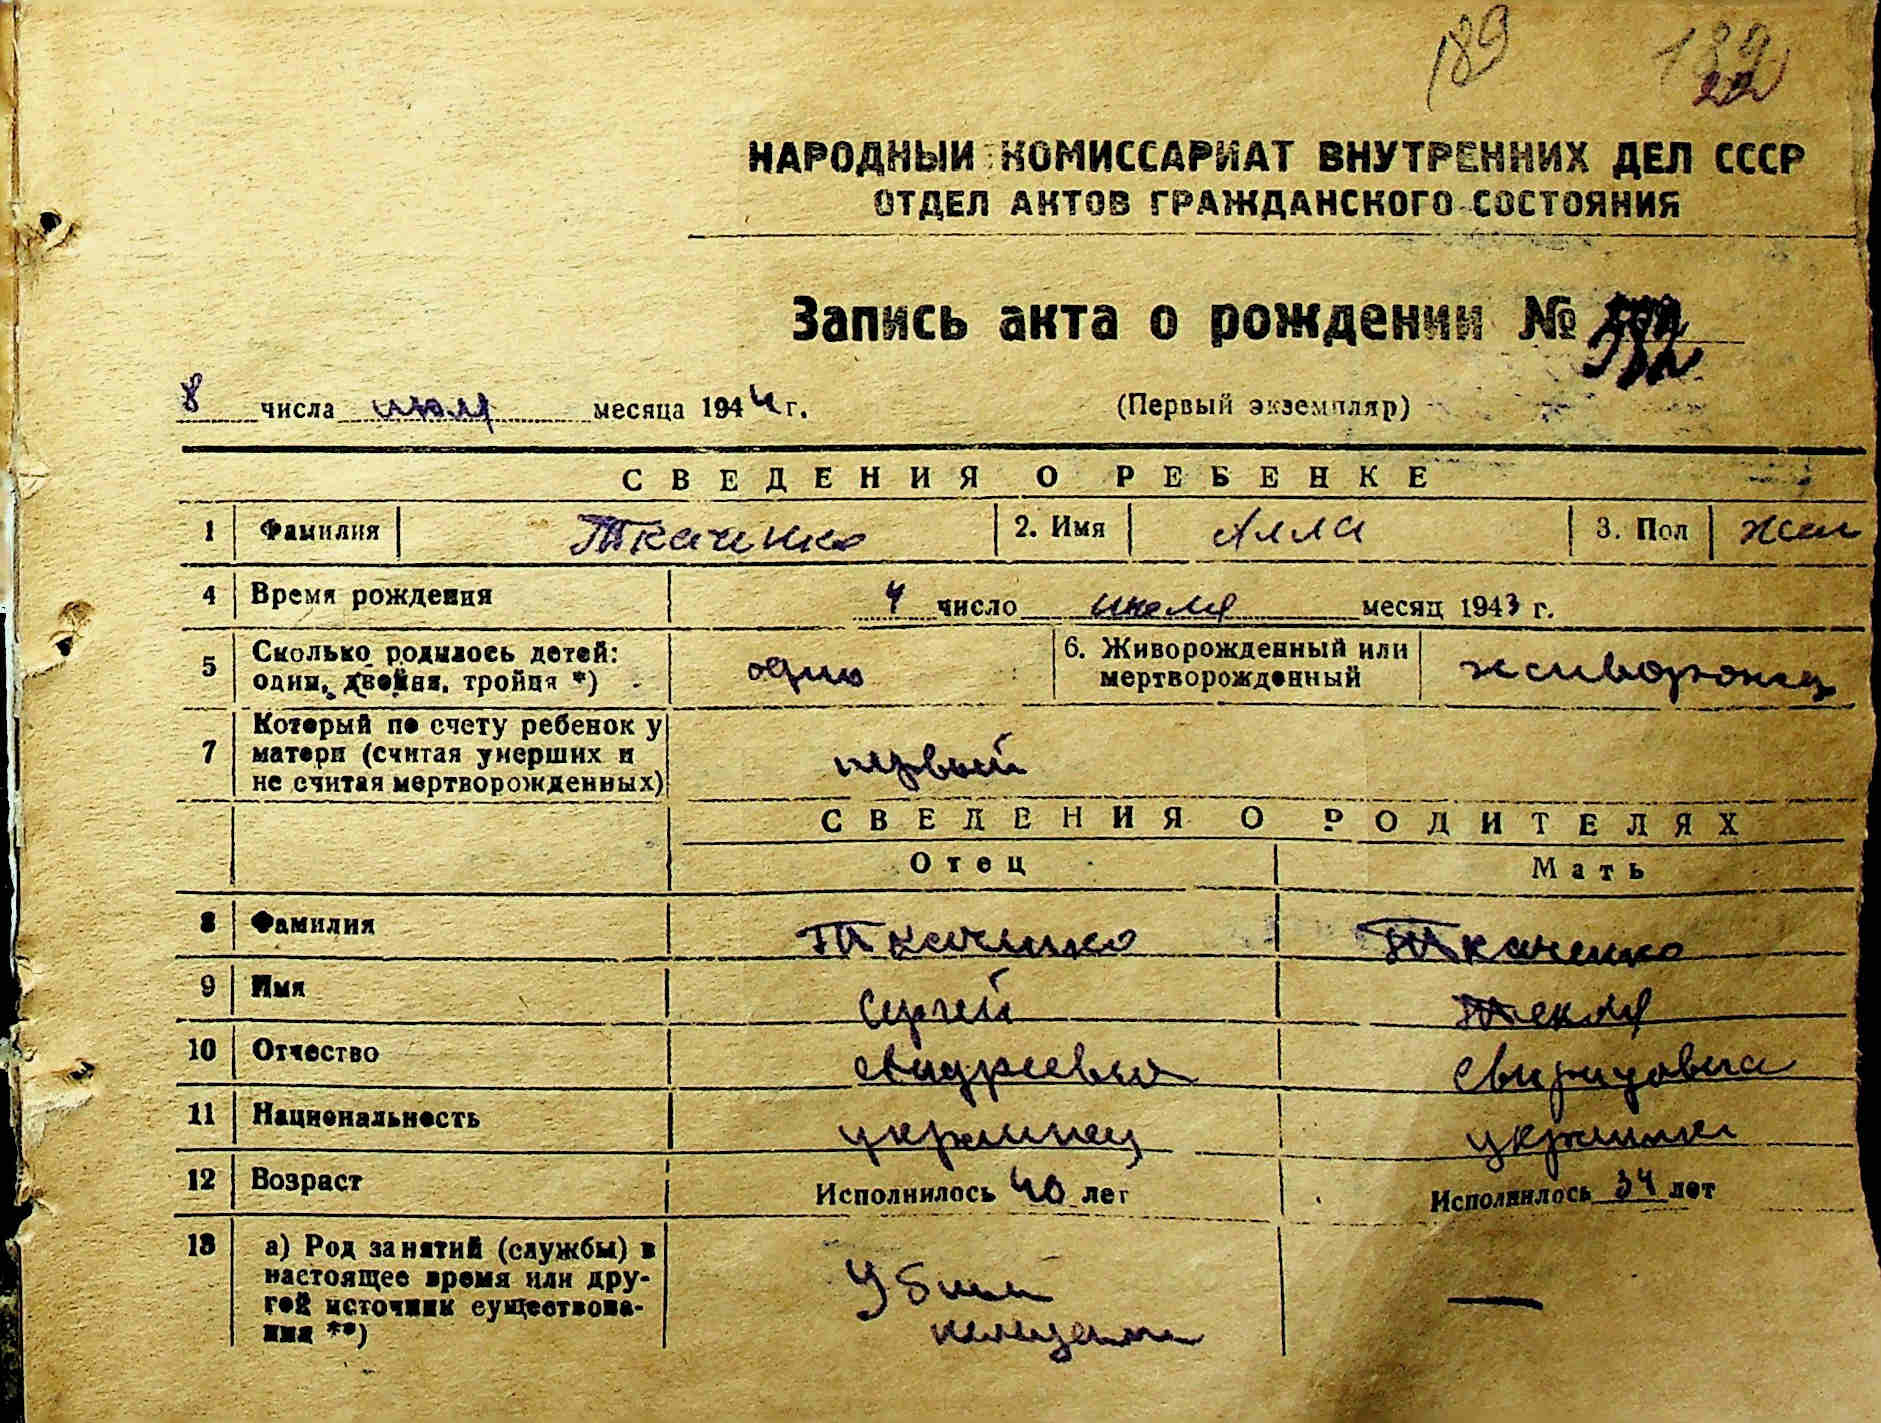 189 189
22
НАРОДНЫЙ КОМИССАРИАТ ВНУТРЕННИХ ДЕЛ СССР
ОТДЕЛ АКТОВ ГРАЖДАНСКОГО СОСТОЯНИЯ
Запись акта о рождении №
8 числа июля месяца 1944 г. (Первый экземпляр)
СВЕДЕНИЯ О РЕБЕНКЕ
1 Фамилия Ткаченко 2. Имя Алла 3. Пол жен
4 Время рождения 4 число июля месяц 1943 г.
5 Сколько родилось детей: один, двойня, тройня *) одно 6. Живорожденный или мертворожденный живорожд
7 Который по счету ребенок у матери (считая умерших и не считая мертворожденных) первый
СВЕДЕНИЯ О РОДИТЕЛЯХ
Отец Мать
8 Фамилия Ткаченко Ткаченко
9 Имя Сергей Текля
10 Отчество Андреевич Свиридовна
11 Национальность украинец украинка
12 Возраст Исполнилось 40 лет Исполнилось 34 лет
13 а) Род занятий (службы) в
настоящее время или дру-
гой источник существова-
ния **)
Убит